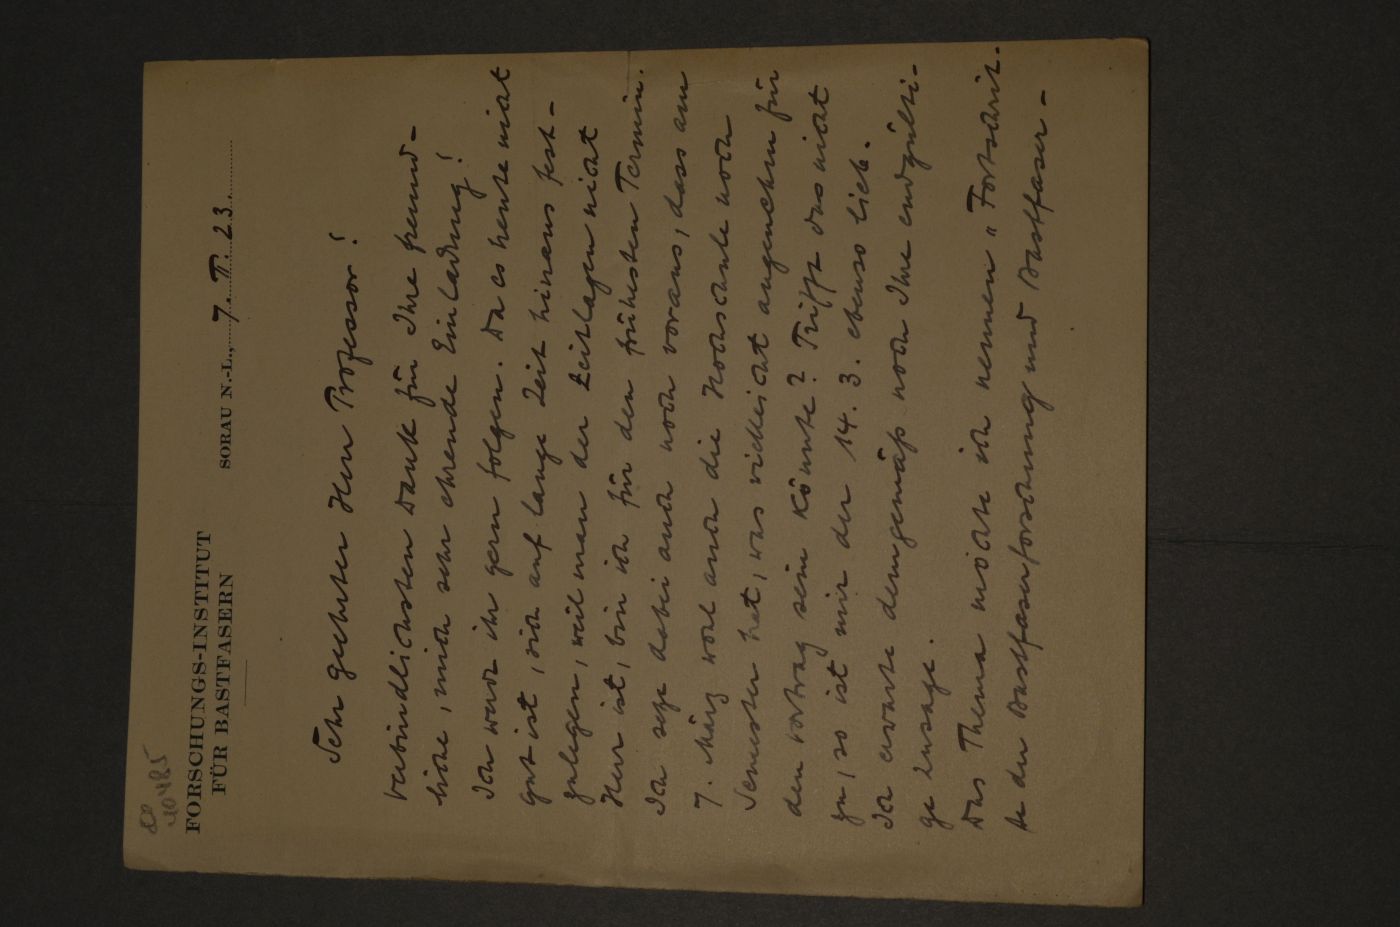 40485
FORSCHUNGS-INSTITUT
FÜR BASTFASERN
SORAU N.-L., 7. II. 23.
Sehr geehrter Herr Professor!
Verbindlichsten Dank für Ihre freund-
liche, mich sehr ehrende Einladung!
Ich werde ihr gern folgen. Da es heute nicht
gut ist, sich auf lange Zeit hinaus fest-
zulegen, weil man der Zeitlagen nicht
Herr ist, bin ich für den frühesten Termin.
Ich setze dabei auch noch voraus, dass am
7. März wohl auch die Hochschule noch
Semester hat, was vielleicht angenehm für
den Vortrag sein könnte? Trifft das nicht
zu, so ist mir der 14. 3. ebenso lieb.
Ich erwarte demgemäß noch Ihre endgülti-
ge Zusage.
Das Thema möchte ich nennen „Fortschrit-
te der Bastfaserforschung und Bastfaser-